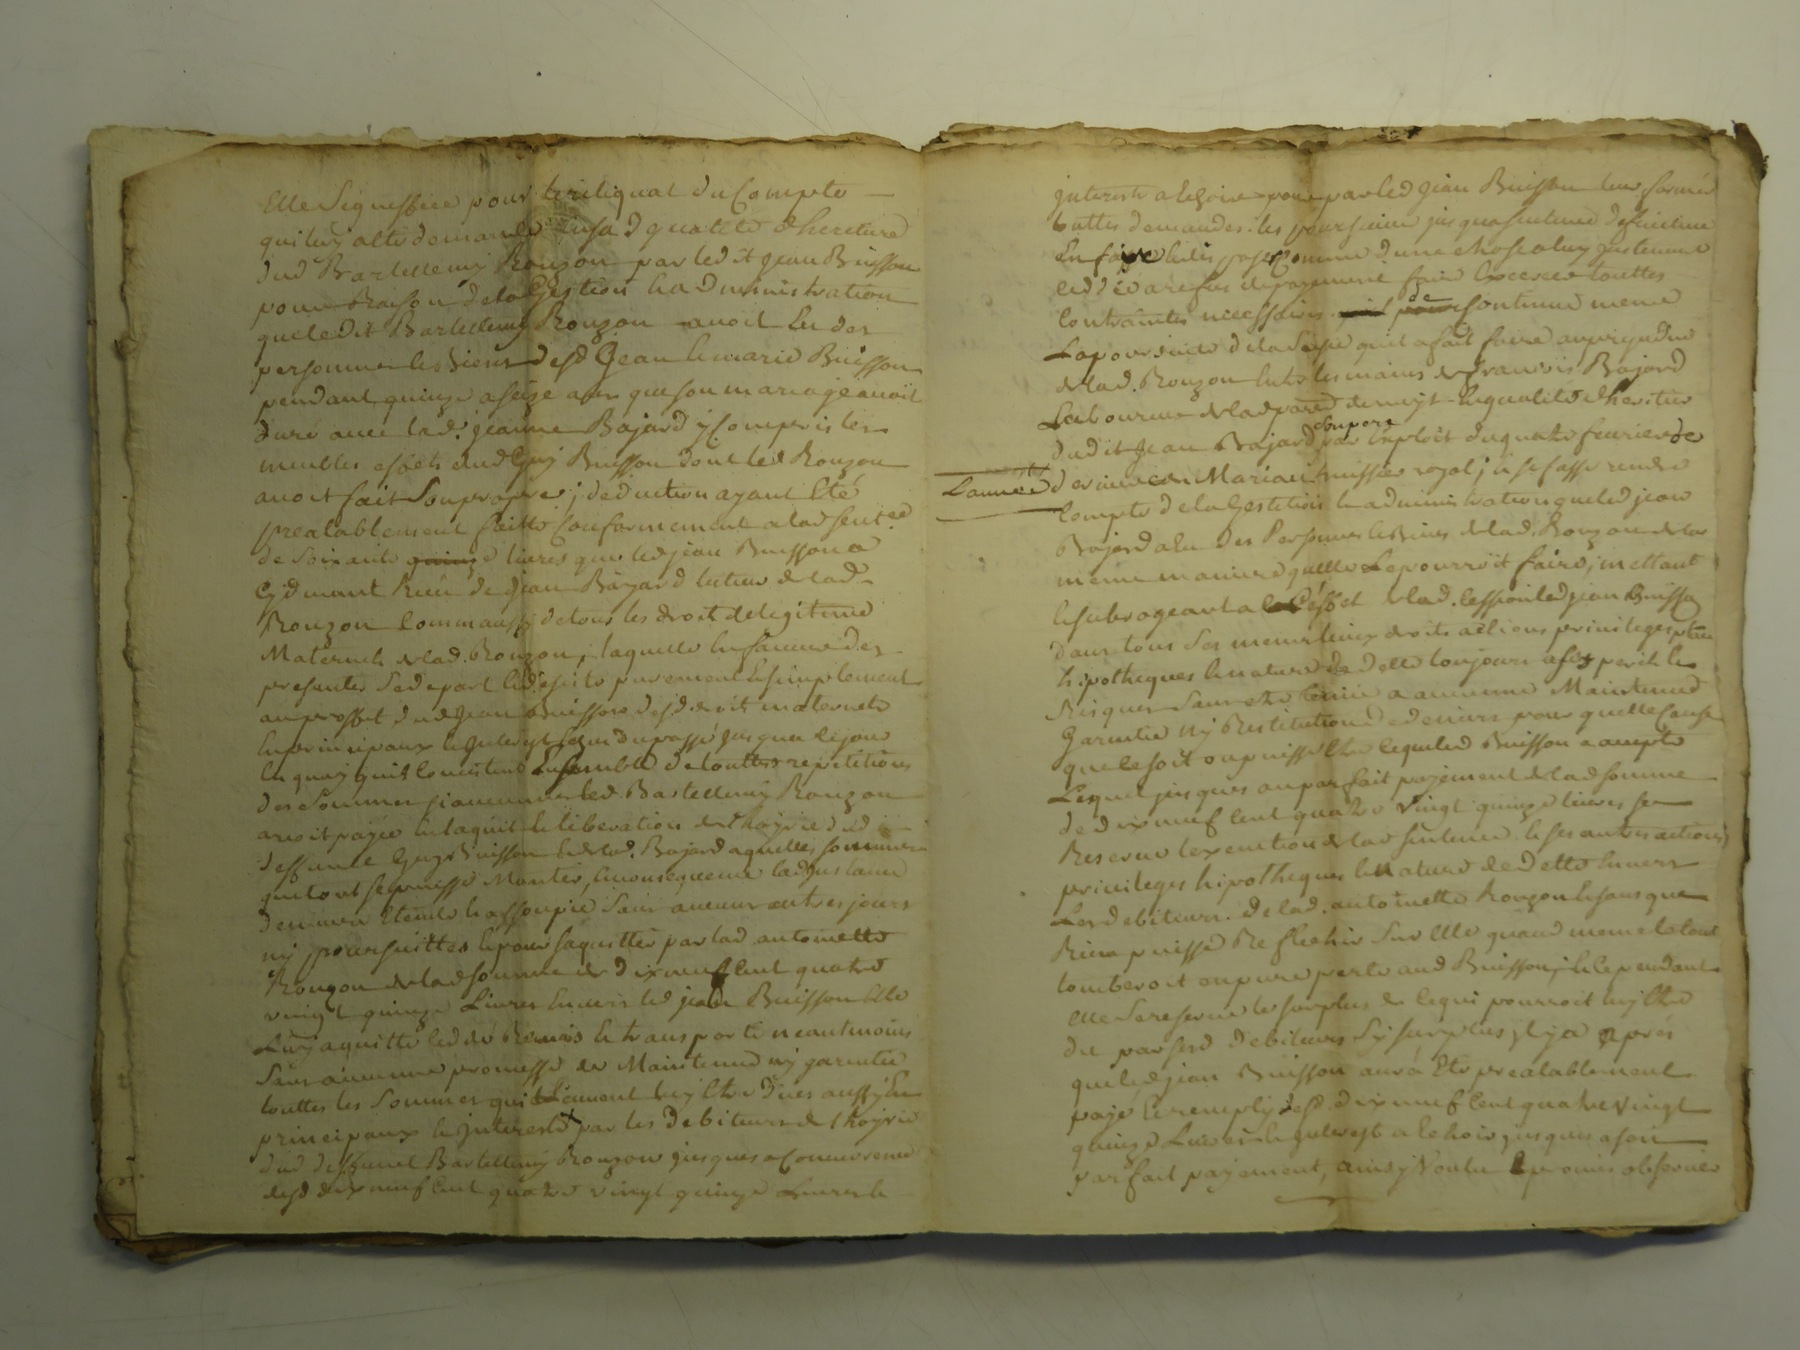 Elle Signiffiee pour le reliquat du Compte
qui luy a ete demandé en sad qualité dheretiere
dud Bartellemy Rouzon par ledit Jean Buisson
pour Raison de la Gestion & administration
que ledit Bartellemy Rouzon avoit Eu des
personnes & biens desd Jean & marie Buisson
pendant quinze a seize ans que son mariage avoit
duré avec lad. jeanne Bajard y Compris les
meubles effets dud Guy Buisson dont led Rouzon
avoit fait Son propre; deduction ayant Eté
prealablement faitte Conformement a lad sentce
de Soixante quinze livres que led jean Buisson a
Cy devant Reçu de Jean Bajard tuteur de lad
Rouzon Comm aussy de tous les droits de legitime
Maternels de lad. Rouzon, laquelle en faveur des
presentes Se depart & desiste purement & simplement
au proffit dud Jean Buisson desd droits maternels
en principaux & Interest Echus du passé jusqua ce jour
En quoy quils Consistent Ensemble de touttes repetitions
des Sommes que led Bartellemy Rouzon
avoit payée en laquit & liberation de lhoyrie dud
deffunt Guy Buisson & de lad. Bajard a quelles sommes
que le tout se puisse Monter, En consequence lad Instance
demeure Eteinte & assoupie Sans aucuns autres jours
ny poursuittes & pour saquitter par lad antoinette
Rouzon de lad somme de dix neuf Cent quatre
vingt quinze Livres Envers led jean Buisson Elle
Luy a quitté cedé Remis & transporté neantmoins
Sans aucune promesse de Maintenue ny garentie
touttes les Sommes qui luy Etre dues aussy En
principaux & Interests par les debiteurs de lhoyrie
dud deffunt Bartellemy Rouzon jusques a Concurrence
desd dix neuf Cent quatre vingt quinze Livres &
interests a Echoir pour par led Jean Buisson leur former
touttes demandes. les poursuivre jusqua sentence deffinitive
En faire & disposer Comme dune chose a luy justement
cedée a refus de payement faire Exercer touttes
Contraintes necessaires de Continuer meme
La poursuite de la Saisie quil a fait faire au prejudice
de lad. Rouzon Entre les mains de francois Bajard
Laboureur de lad parr En qualité dheritier
dudit Jean Bajard son pere par Exploit du quatre fevrier de
Lannée derniere Mariau huissier royal; & se fasse rendre
Compte de la Gestion & administration que led jean
Bajard a Eu des Personnes & Biens de lad. Rouzon de la
meme maniere quelle Le pourroit faire, mettant
& subrogeant a Cet effet de lad. Cession led jean Buisson
dans tous Ses memes lieux droits actions privileges
hipotheques & nature de dette toujours a ses perils &
Risques Sans etre tenue a aucune Maintenue
Garentie ny Restitution de deniers pour quelle Cause
que Ce soit ou puisse Etre Ce que led Buisson a accepté
Lequel jusques au parfait payement de lad somme
de dix neuf Cent quatre vingt quinze livres se
Reserve lexecution de lad sentence & ses autres actions
privileges hipotheques & Nature de Dette Envers
Les debiteurs. de lad. antoinette Rouzon & sans que
Rien puisse Reflechir Sur Elle quand meme le tout
tomberoit en pure perte aud Buisson, & Cependant
Elle Se reserve le surplus de Ce qui pourroit luy Etre
du par sesd debiteurs Sy surplus il y a après
que led jean Buisson aura Ete prealablement
payé & remply desd. dix neuf Cent quatre vingt
quinze Livres & Interest a Echoir jusques a son
parfait payement, ainsy Voulu & promis observer